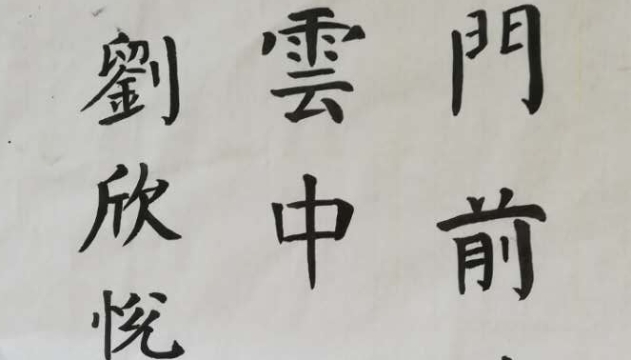 門前
雲中
劉欣悅